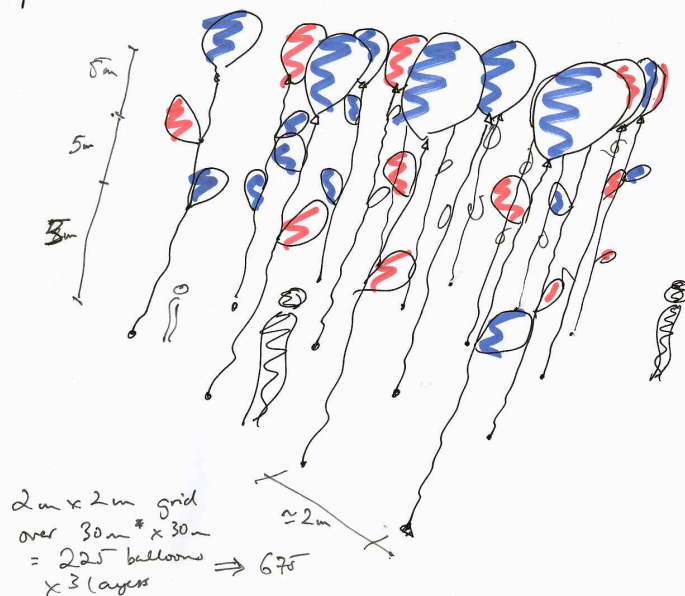 5m
5m
5m
≃2m
2m x 2m grid
over 30m x 30m
= 225 balloons
x 3 layers
⇒ 675